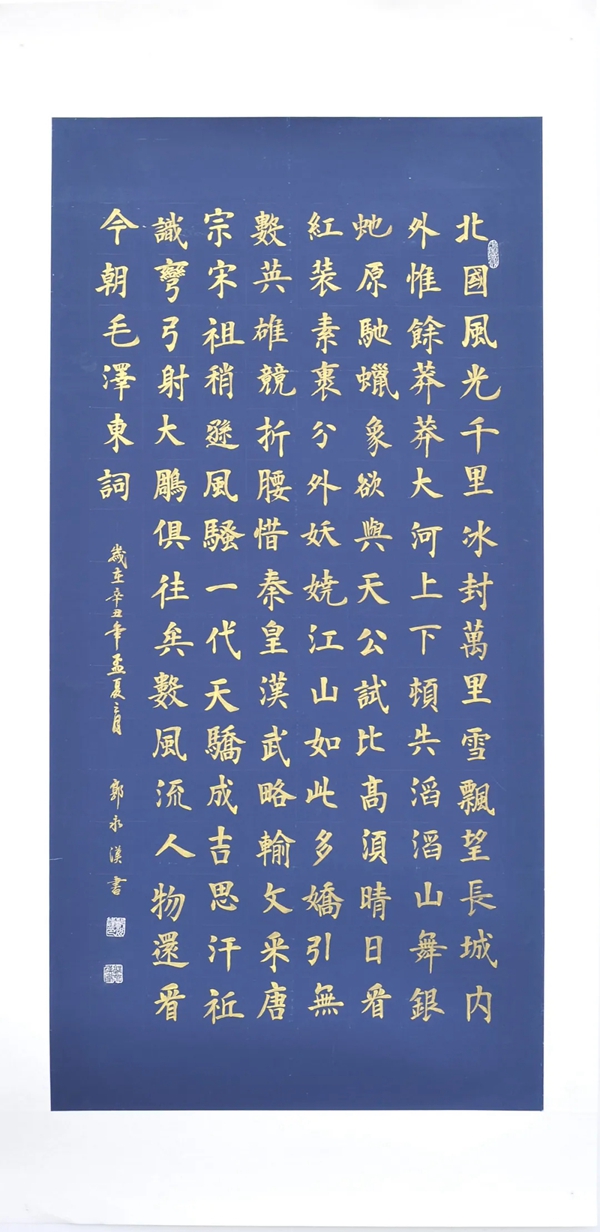 北國風光千里冰封萬里雪飄望長城内
外惟餘莽莽大河上下頓失滔滔山舞銀
虵原馳蠟象欲與天公試比高須晴日看
紅装素裹分外妖嬈江山如此多嬌引無
數英雄競折腰惜秦皇漢武略輸文采唐
宗宋祖稍遜風騷一代天驕成吉思汗祇
識彎弓射大鵰俱往矣數風流人物還看
今朝毛澤東詞
歲在辛丑年孟夏之月 郭永漢書